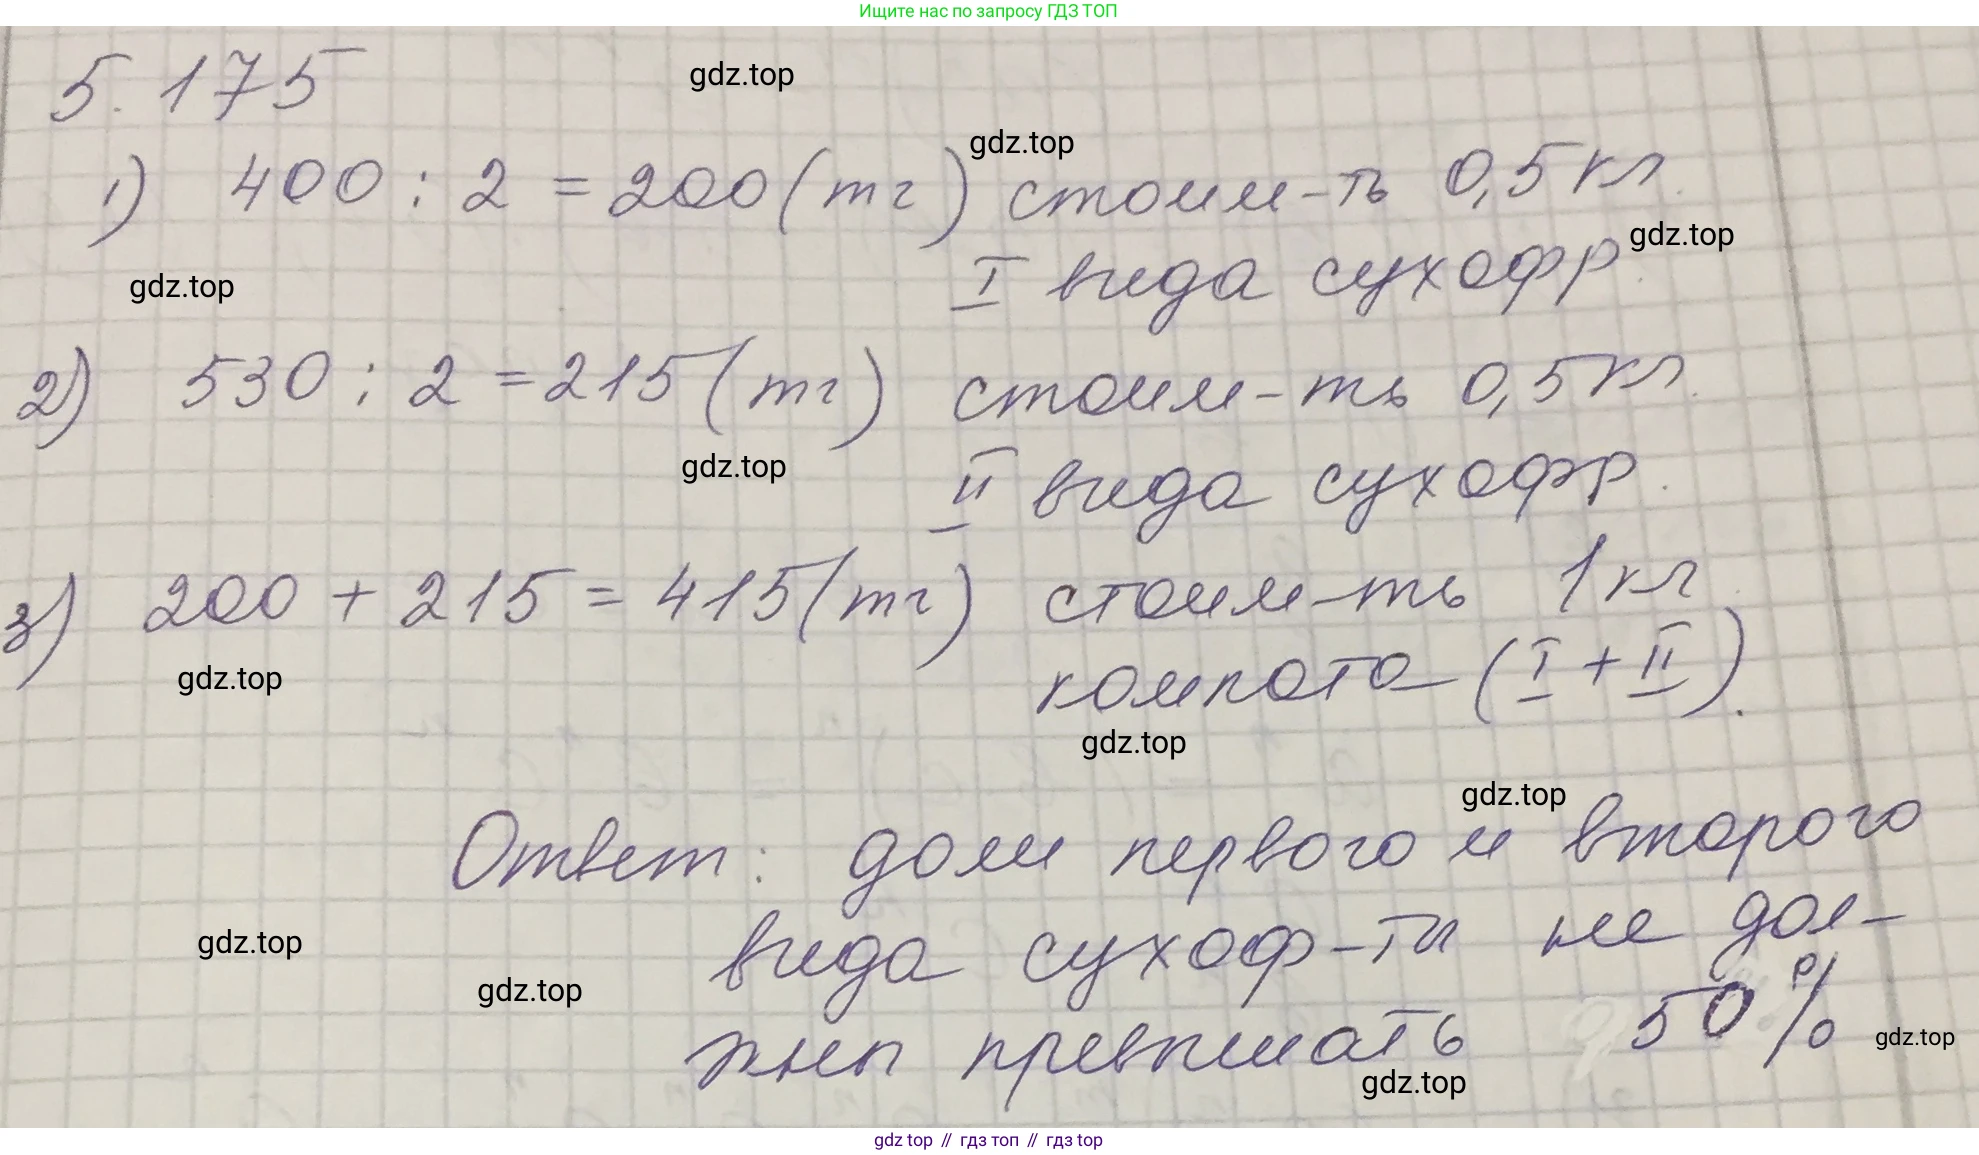 Ищите нас по запросу ГДЗ ТОП
5.175
gdz.top
gdz.top
1) 400 : 2 = 200 (тг) стоим-ть 0,5 кг.
gdz.top
I вида сухофр.
gdz.top
2) 530 : 2 = 215 (тг) стоим-ть 0,5 кг.
gdz.top
II вида сухофр.
3) 200 + 215 = 415 (тг) стоим-ть 1 кг
gdz.top
компота (I + II).
gdz.top
gdz.top
Ответ: доли первого и второго
gdz.top
вида сухоф-ти не дол-
gdz.top
жны превышать 50%
gdz.top
gdz.top
gdz top // гдз топ // гдз top